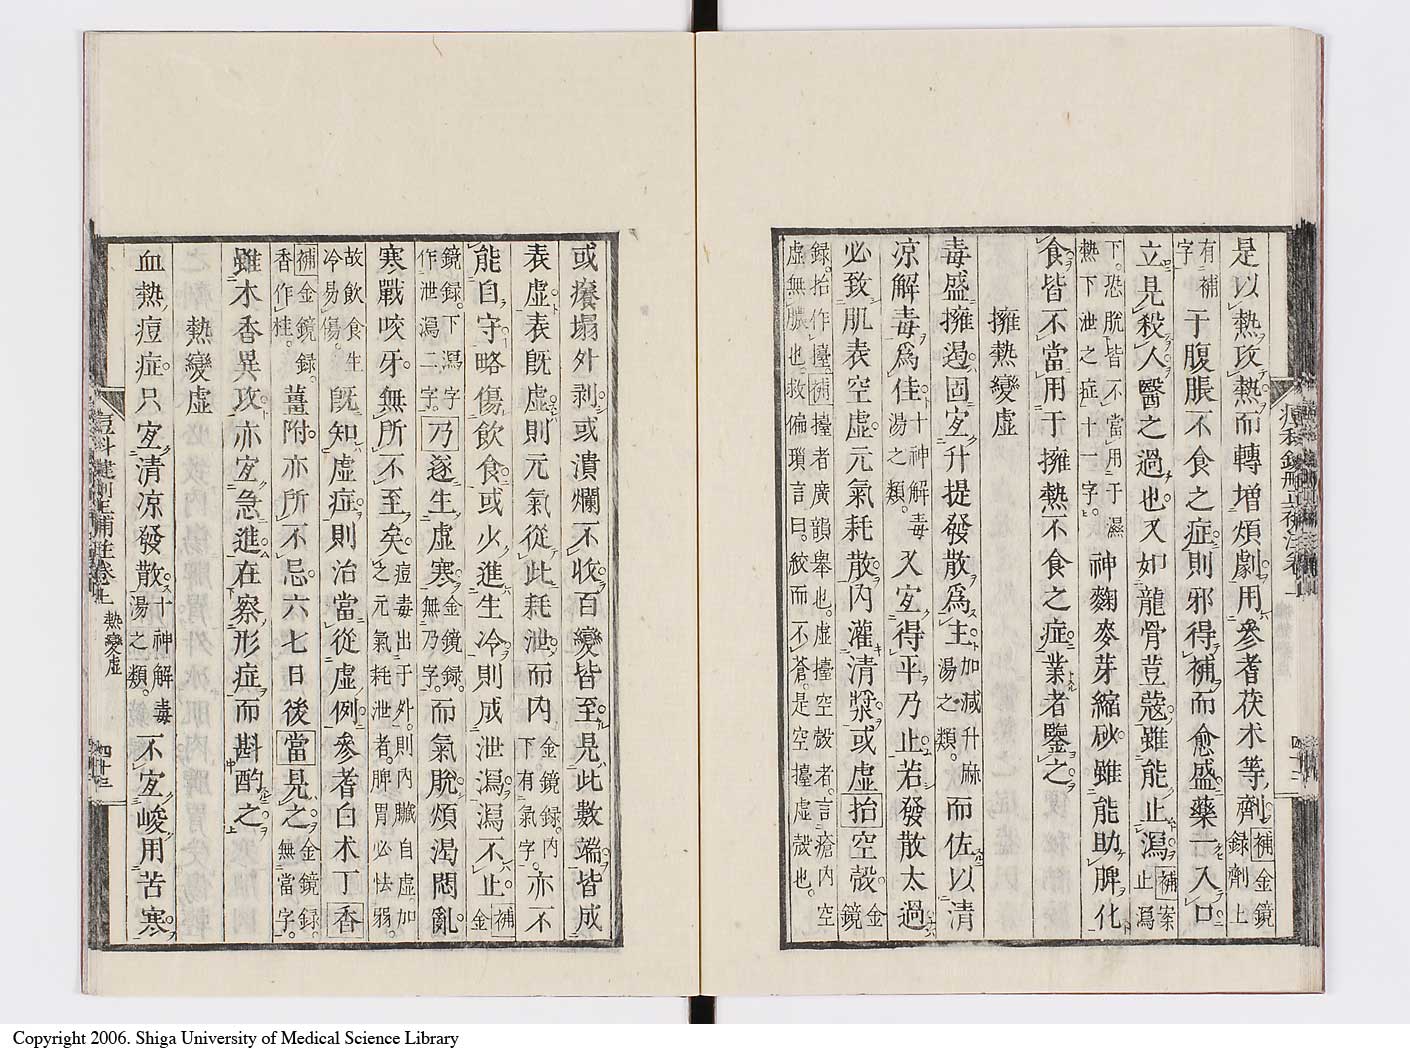 是以熱攻熱而轉增煩劇用參耆茯朮等劑補金鏡録劑上
有補字于腹脹不食之症則邪得補而愈盛藥一入口
立見殺人醫之過也又如龍骨荳蔻雖能止瀉補案止瀉
下恐脱皆不當用于濕熱下泄之症十一字神麴麥芽縮砂雖能助脾化
食皆不當用于擁熱不食之症業者鑒之
擁熱變虛
毒盛擁遏固宜升提發散爲主加減升麻湯之類而佐以清
凉解毒爲佳十神解毒湯之類又宜得平乃止若發散太過
必致肌表空虛元氣耗散内灌清漿或虛抬空殼金鏡
録抬作擡補擡者廣韻舉也虛擡空殼者言瘡内空
虛無膿也救偏瑣言曰絞而不蒼是空擡虛殼也
四十二
或癢塌外剥或潰爛不收百變皆至見此數端皆成
表虛表既虛則元氣從此耗泄而内金鏡録内下有氣字亦不
能自守略傷飲食或火進生冷則成泄瀉瀉不止補金
鏡録下瀉字作泄瀉二字乃遂生虛寒金鏡録無乃字而氣脱煩渴悶亂
寒戰咬牙無所不至矣痘毒出于外則内臟自虛加之元氣耗泄者脾胃必怯弱
故飲食生冷易傷既知虛症則治當從虛例參耆白朮丁香
補金鏡録香作桂薑附亦所不忌六七日後當見之金鏡録無當字
雖木香異攻亦宜急進在察形症而斟酌之
熱變虛
血熱痘症只宜清凉發散十神解毒湯之類不宜峻用苦寒
痘科鍵刪正補註卷上 熱變虛 四十三
Copyright 2006. Shiga University of Medical Science Library